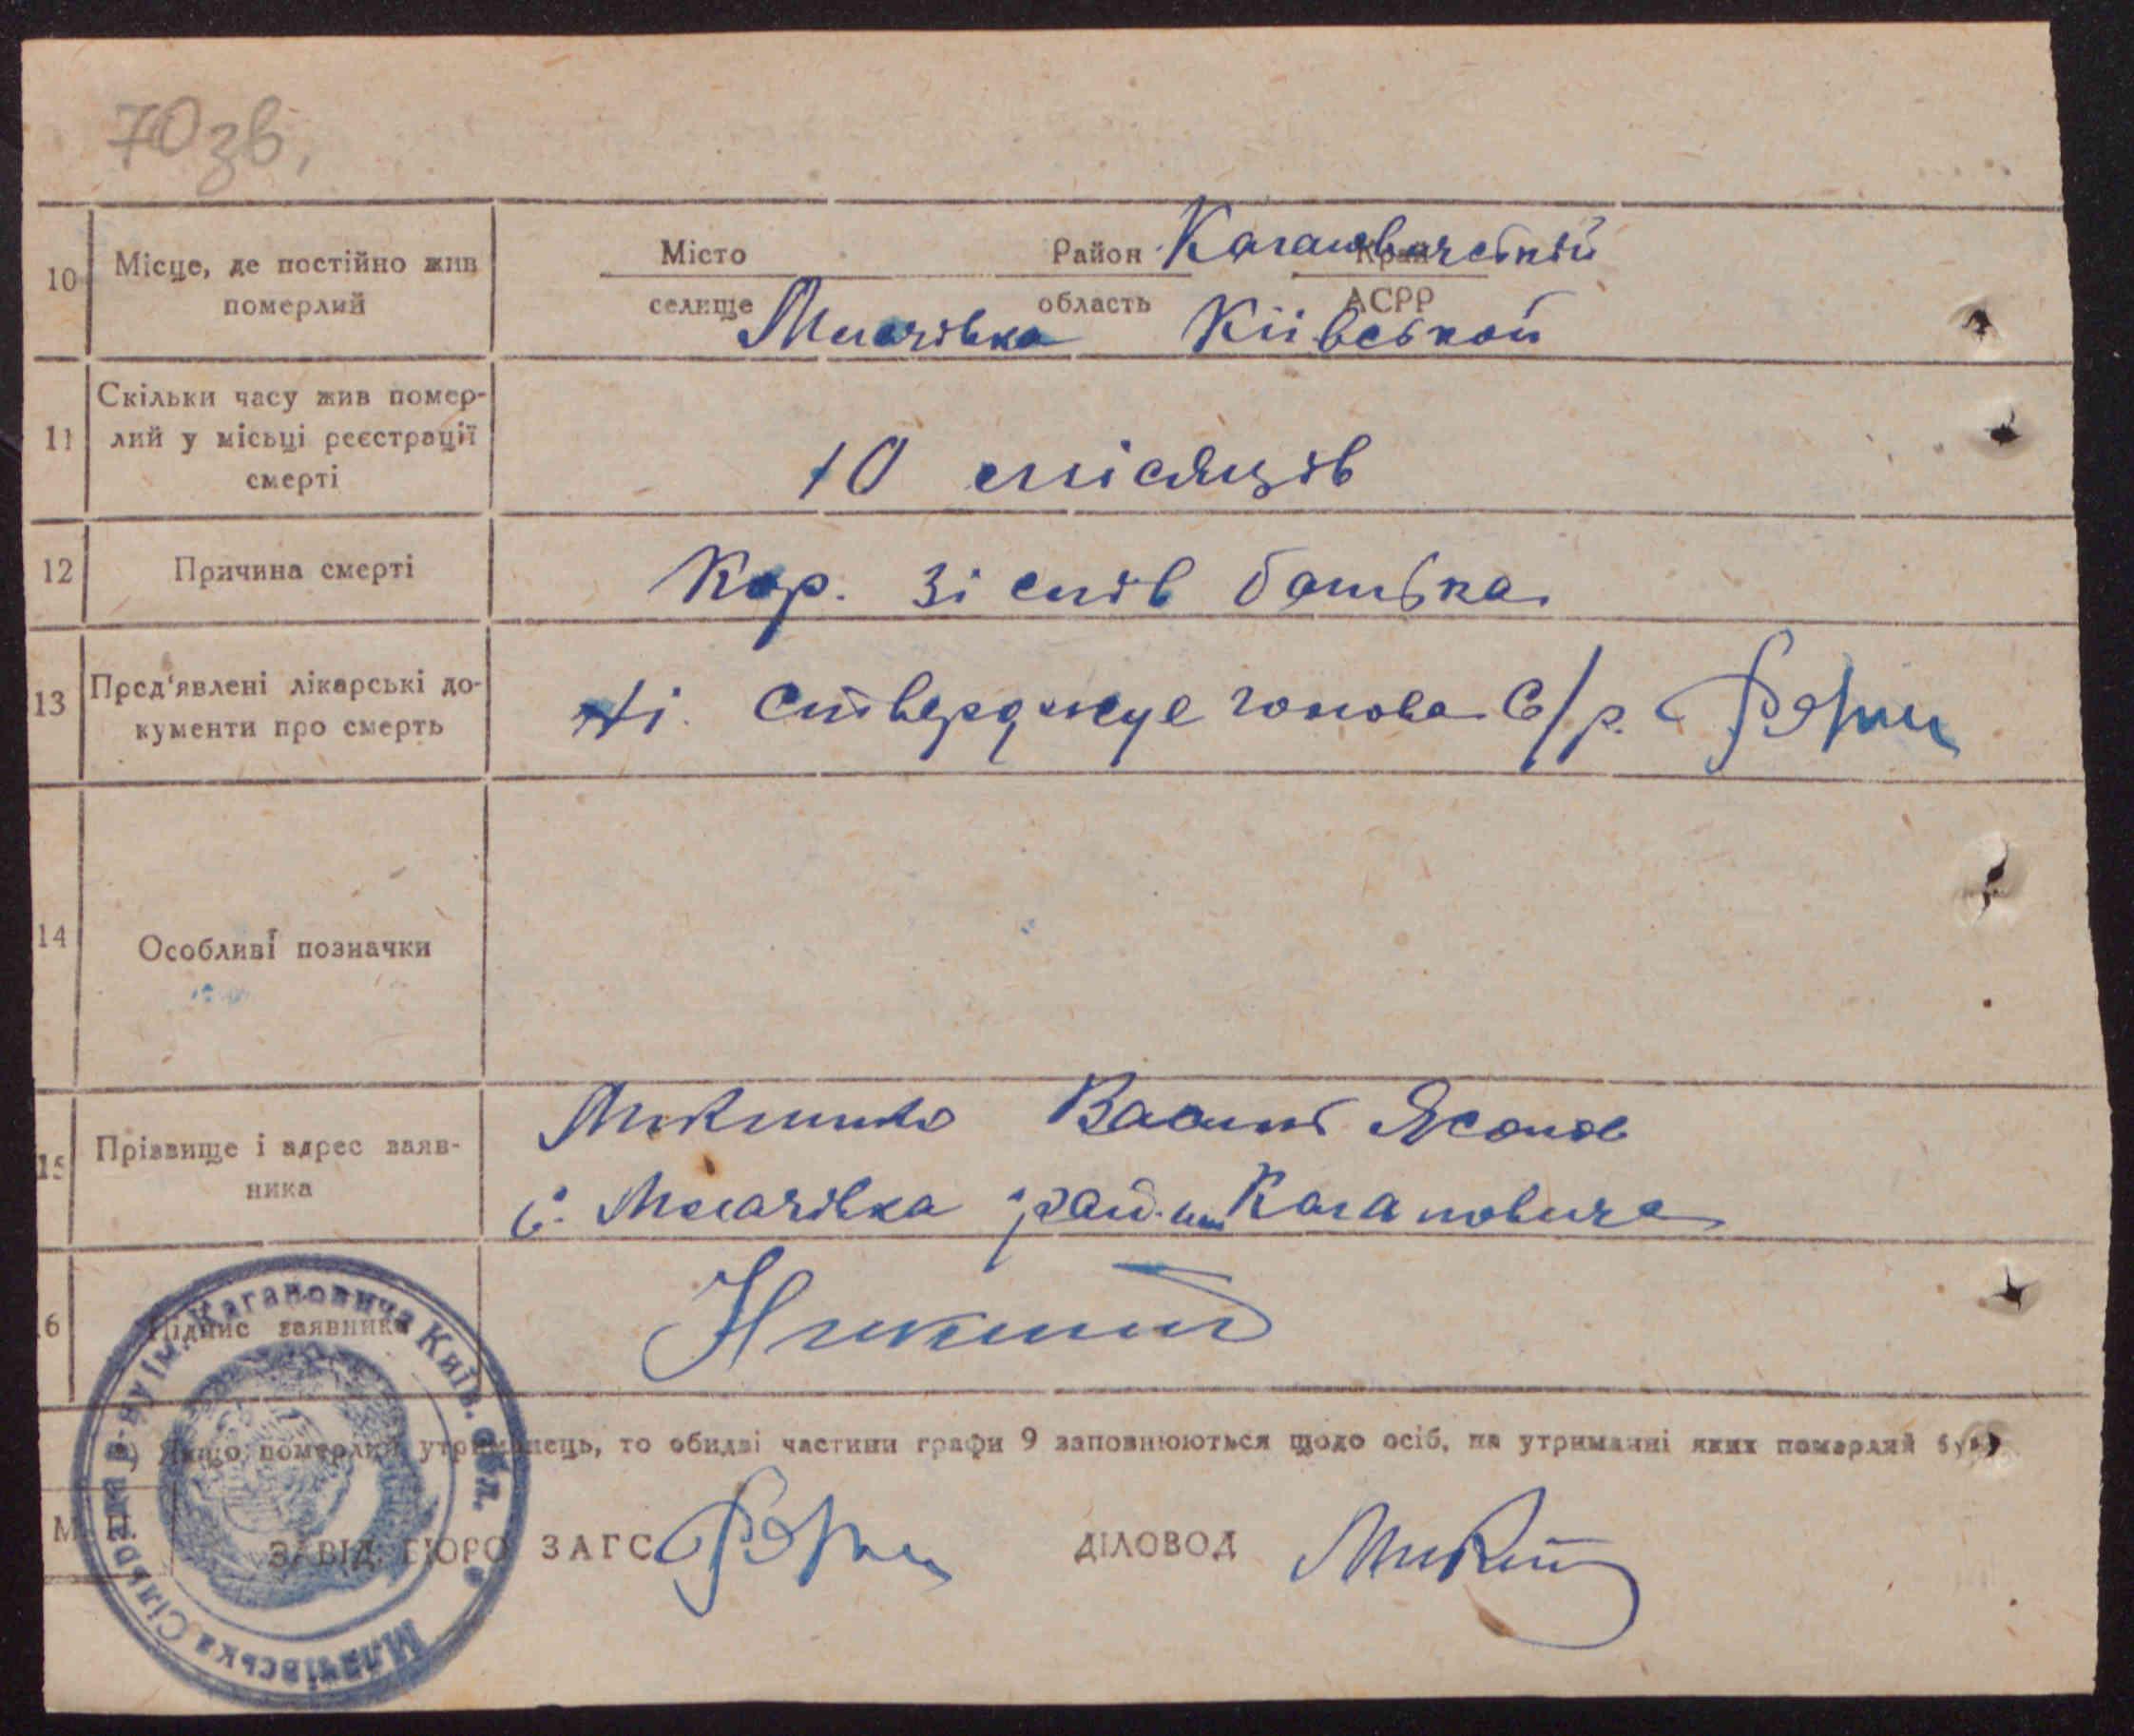 70зв,
10 Місце, де постійно жив померлий
Місто Район Край Кагановичський
селище область АСРР Млачівка Київської
11 Скільки часу жив помер-
лий у місьці реєстрації
смерті
10 місяців
12 Причина смерті
Кор. зі слів батька
13 Пред'явлені лікарські до-
кументи про смерть
Ні. Стверджує голова С/р.
14 Особливі позначки
15 Прізвище і адрес заяв-
ника
Василь
с. Млачівка рай. им Кагановича
16 Підпис заявника
*) Якщо померлий утриманець, то обидві частини графи 9 заповнюються щодо осіб, на утриманні яких померлий був
М. П.
ЗАВІД. БЮРО ЗАГС ДІЛОВОД
Млачівська Сільрада р-ну ім. Кагановича Київ. обл.